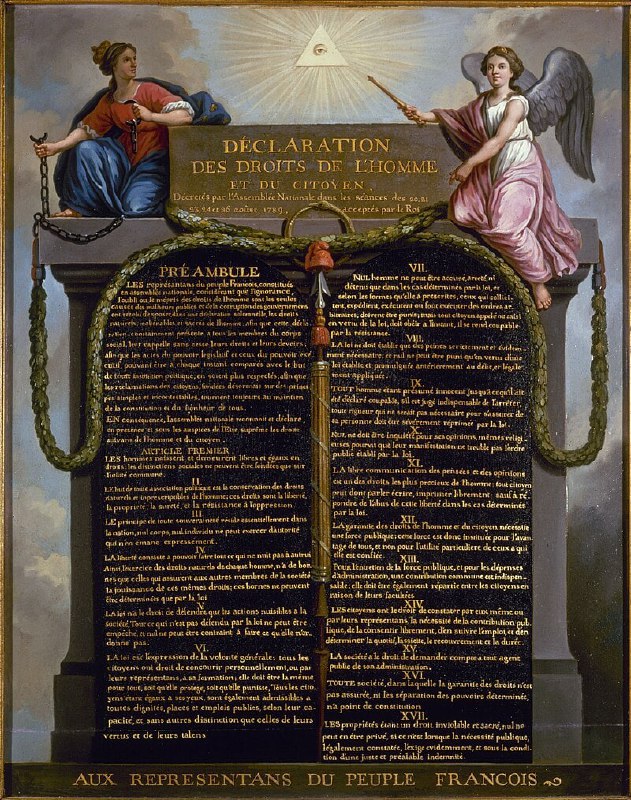 DÉCLARATION
DES DROITS DE L'HOMME
ET DU CITOYEN,
Décretés par l'Assemblée Nationale dans les séances des 20, 21
23, 24 et 26 aoûst 1789, acceptés par le Roi
PRÉAMBULE
LES représentans du peuple François, constitués
en assemblée nationale, considérant que l'ignorance,
l'oubli ou le mépris des droits de l'homme sont les seules
causes des malheurs publics et de la corruption des gouvernemens
ont résolu d'exposer dans une déclaration solemnelle, les droits
naturels, inaliénables et sacrés de l'homme, afin que cette décla
ration, constamment présente a tous les membres du corps
social, leur rappelle sans cesse leurs droits et leurs devoirs,
afin que les actes du pouvoir legislatif et ceux du pouvoir exé
cutif, pouvant être à chaque instant comparés avec le but
de toute institution politique, en soient plus respectés; afin que
les réclamations des citoyens, fondées désormais sur des principes
simples et incontestables, tournent toujours au maintien
de la constitution et du bonheur de tous.
EN conséquence, l'assemblée nationale reconnoit et déclare,
en présence et sous les auspices de l'Etre suprême les droits
suivans de l'homme et du citoyen.
ARTICLE PREMIER.
LES hommes naissent et demeurent libres et égaux en
droits; les distinctions sociales ne peuvent être fondées que sur
l'utilité commune.
II.
LE but de toute association politique est la conservation des droits
naturels et imprescriptibles de l'homme; ces droits sont la liberté,
la propriété, la sureté, et la résistance à l'oppression.
III.
LE principe de toute souveraineté réside essentiellement dans
la nation, nul corps, nul individu ne peut exercer d'autorité
qui n'en émane expressément.
IV.
LA liberté consiste a pouvoir faire tout ce qui ne nuit pas à autrui
Ainsi, l'exercice des droits naturels de chaque homme, n'a de bor-
nes que celles qui assurent aux autres membres de la société
la jouissance de ces mêmes droits; ces bornes ne peuvent
être déterminées que par la loi
V.
LA loi n'a le droit de défendre que les actions nuisibles à la
société. Tout ce qui n'est pas défendu par la loi ne peut être
empêché, et nul ne peut être contraint à faire ce qu'elle n'or-
donne pas.
VI.
LA loi est l'expression de la volonté générale; tous les
citoyens ont droit de concourir personnellement, ou par
leurs représentans, à sa formation; elle doit être la même
pour tous, soit qu'elle protege, soit qu'elle punisse. Tous les cito
yens étant égaux à ses yeux, sont également admissibles à
toutes dignités, places et emplois publics, selon leur ca-
pacité, et sans autres distinction que celles de leurs
vertus et de leurs talens.
VII.
NUL homme ne peut être accusé, arreté, ni
détenu que dans les cas déterminés par la loi, et
selon les formes qu'elle a prescrites, ceux qui sollicitent,
expédient, exécutent ou font exécuter des ordres ar-
bitraires, doivent être punis; mais tout citoyen appelé ou saisi
en vertu de la loi, doit obéir a l'instant, il se rend coupable
par la résistance.
VIII.
LA loi ne doit établir que des peines strictement et évidem-
ment nécessaires, et nul ne peut être puni qu'en vertu d'une
loi établie et promulguée antérieurement au délit, et légale-
ment appliquée.
IX.
TOUT homme étant présumé innocent jusqu'à ce qu'il ait
été déclaré coupable, s'il est jugé indispensable de l'arrêter,
toute rigueur qui ne serait pas nécessaire pour s'assurer de
sa personne doit être sévèrement réprimée par la loi.
X.
NUL ne doit être inquiété pour ses opinions, mêmes religi
euses pourvu que leur manifestation ne trouble pas l'ordre
public établi par la loi.
XI.
LA libre communication des pensées et des opinions
est un des droits les plus precieux de l'homme; tout citoyen
peut donc parler écrire, imprimer librement; sauf à ré
pondre de l'abus de cette liberté dans les cas déterminés
par la loi.
XII.
LA garantie des droits de l'homme et du citoyen nécessite
une force publique; cette force est donc instituée pour l'avan
tage de tous, et non pour l'utilité particuliere de ceux a qui
elle est confiée.
XIII.
POUR l'entretien de la force publique, et pour les dépenses
d'administration, une contribution commune est indispen-
sable; elle doit être également répartie entre les citoyens en
raison de leurs facultées.
XIV.
LES citoyens ont le droit de constater par eux même ou
par leurs représentans, la nécessité de la contribution pub
lique, de la consentir librement, d'en suivre l'emploi, et d'en
déterminer la quotité, l'assiette, le recouvrement et la durée.
XV.
LA société a le droit de demander compte a tout agent
public de son administration.
XVI.
TOUTE société, dans laquelle la garantie des droits n'est
pas assurée, ni les séparation des pouvoirs déterminée,
n'a point de constitution.
XVII.
LES propriétés étant un droit inviolable et sacré, nul ne
peut en être privé, si ce n'est lorsque la nécessité publique,
légalement constatée, l'exige evidemment, et sous la condi-
tion d'une juste et préalable indemnité.
AUX REPRESENTANS DU PEUPLE FRANCOIS